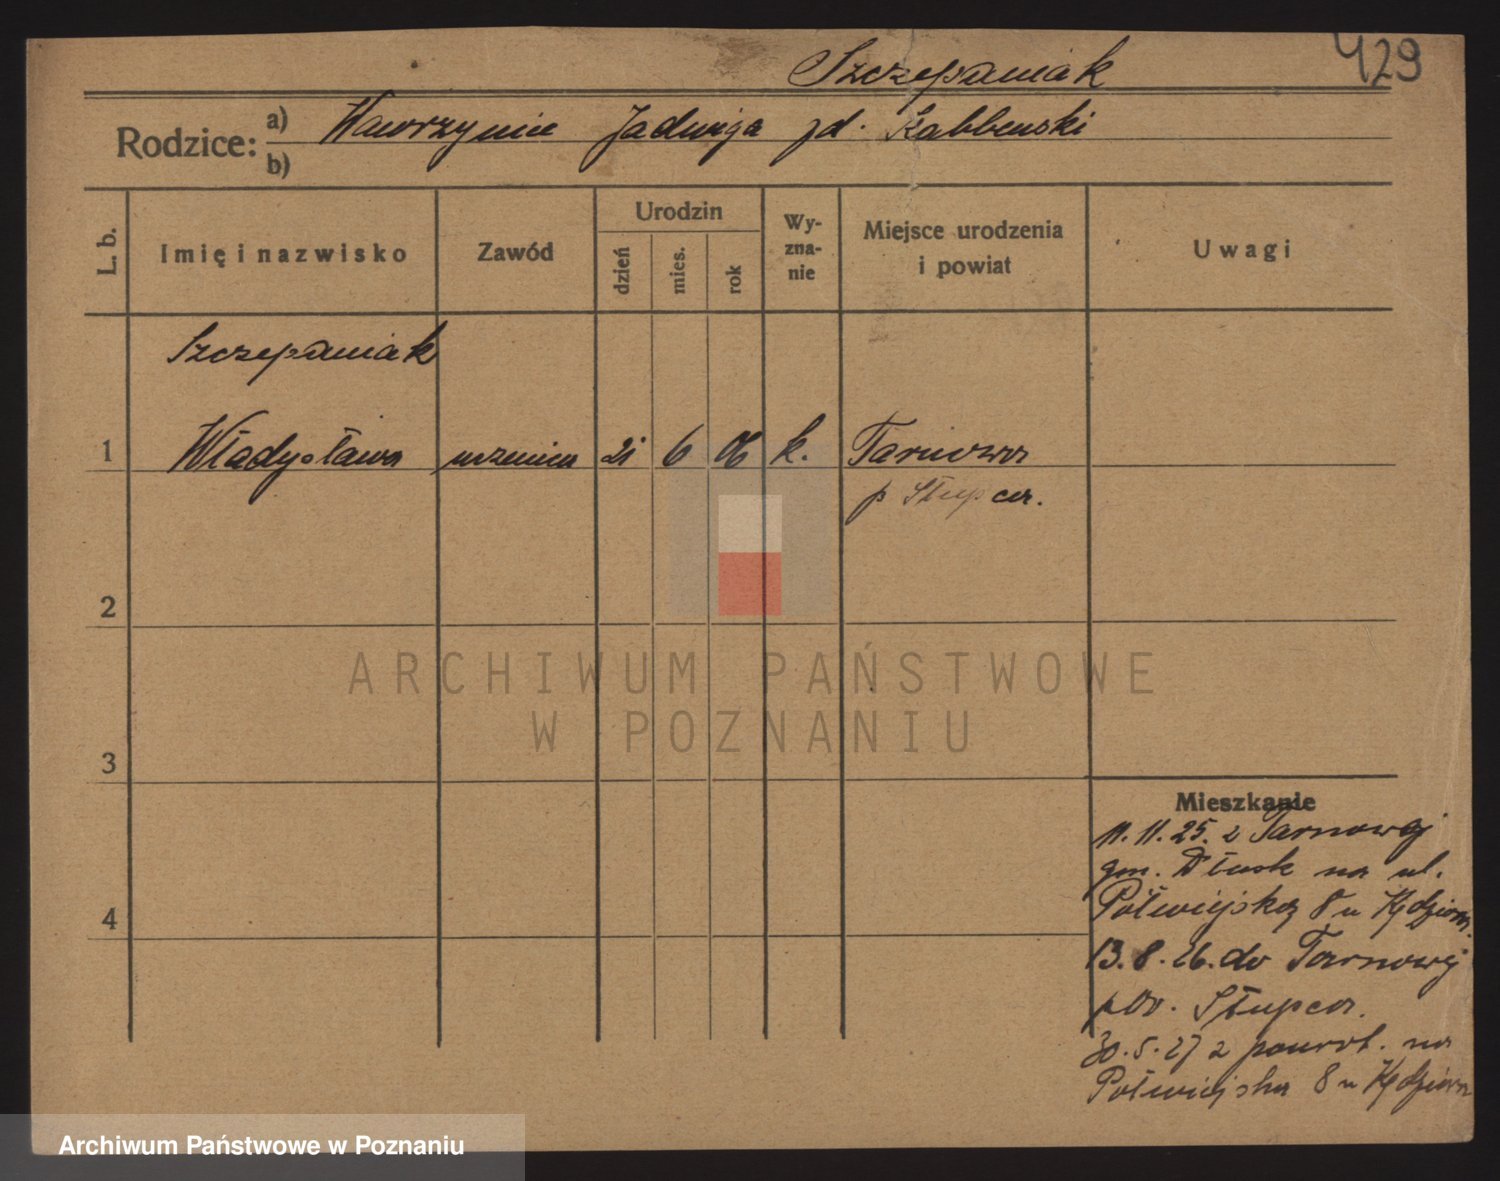 429
Szczepaniak
Rodzice: a) Wawrzyniec Jadwiga zd.
b)
L. b.
Imię i nazwisko
Zawód
Urodzin
dzień
mies.
rok
Wy-
zna-
nie
Miejsce urodzenia
i powiat
Uwagi
Szczepaniak
1 Władysława uczenica 21 6 06 k. Tarnowa
p Słupca.
2
3
4
Mieszkanie
11.11.25. z Tarnowej
gm. Dłusk na ul.
Półwiejską 8 u
13.8.26. do Tarnowej
pow. Słupca.
30.5.27 z powrot. na
Półwiejska 8 u
ARCHIWUM PAŃSTWOWE
W POZNANIU
Archiwum Państwowe w Poznaniu